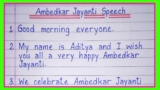 Ambedkar Jayanti Speech
1. Good morning everyone.
2. My name is Aditya and I wish
you all a very happy Ambedkar
Jayanti.
3. We celebrate Ambedkar Jayanti